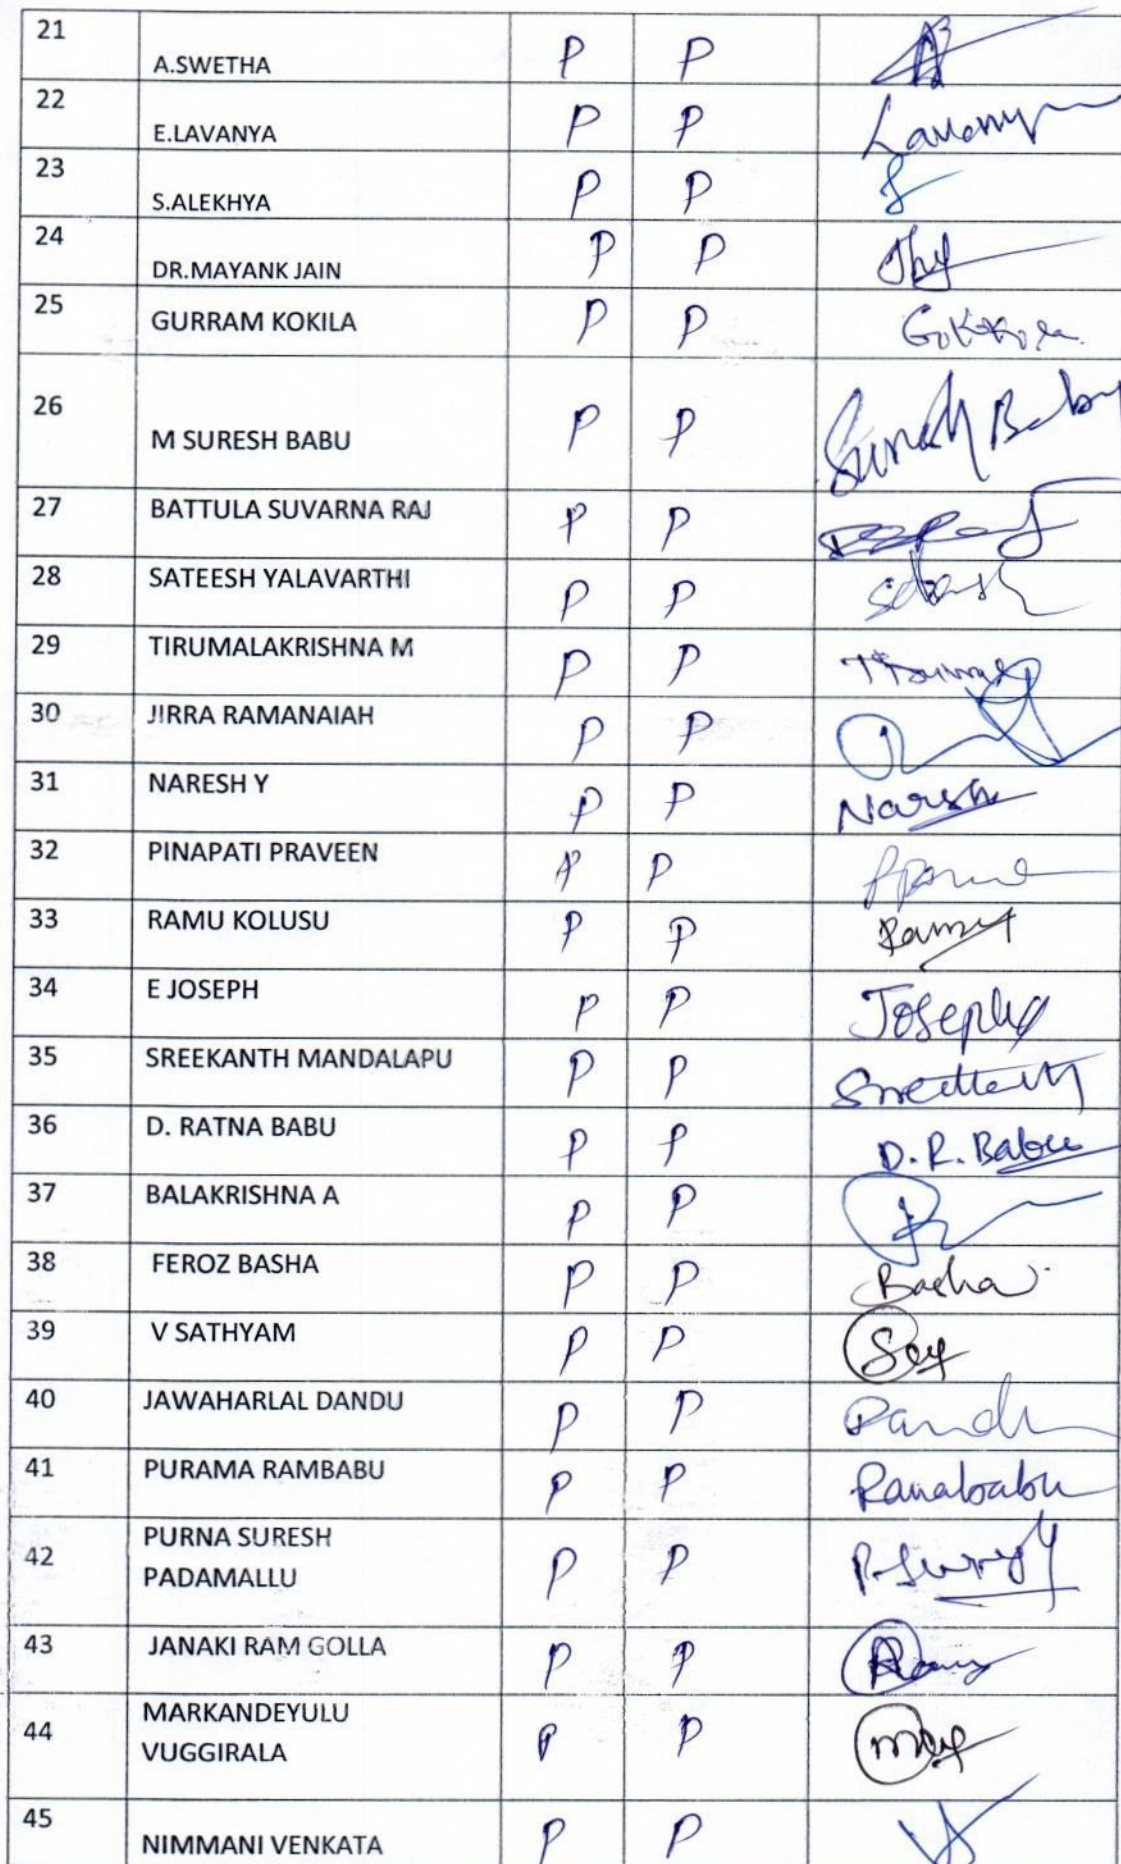 21 A.SWETHA P P
22 E.LAVANYA P P Lavanya
23 S.ALEKHYA P P
24 DR.MAYANK JAIN P P
25 GURRAM KOKILA P P
26 M SURESH BABU P P Suresh Babu
27 BATTULA SUVARNA RAJ P P
28 SATEESH YALAVARTHI P P
29 TIRUMALAKRISHNA M P P
30 JIRRA RAMANAIAH P P
31 NARESH Y P P Naresh
32 PINAPATI PRAVEEN P P
33 RAMU KOLUSU P P Ramu
34 E JOSEPH P P Joseph
35 SREEKANTH MANDALAPU P P
36 D. RATNA BABU P P D.R. Babu
37 BALAKRISHNA A P P
38 FEROZ BASHA P P Basha
39 V SATHYAM P P
40 JAWAHARLAL DANDU P P Dandu
41 PURAMA RAMBABU P P Rambabu
42 PURNA SURESH
PADAMALLU P P
43 JANAKI RAM GOLLA P P
44 MARKANDEYULU
VUGGIRALA P P
45 NIMMANI VENKATA P P